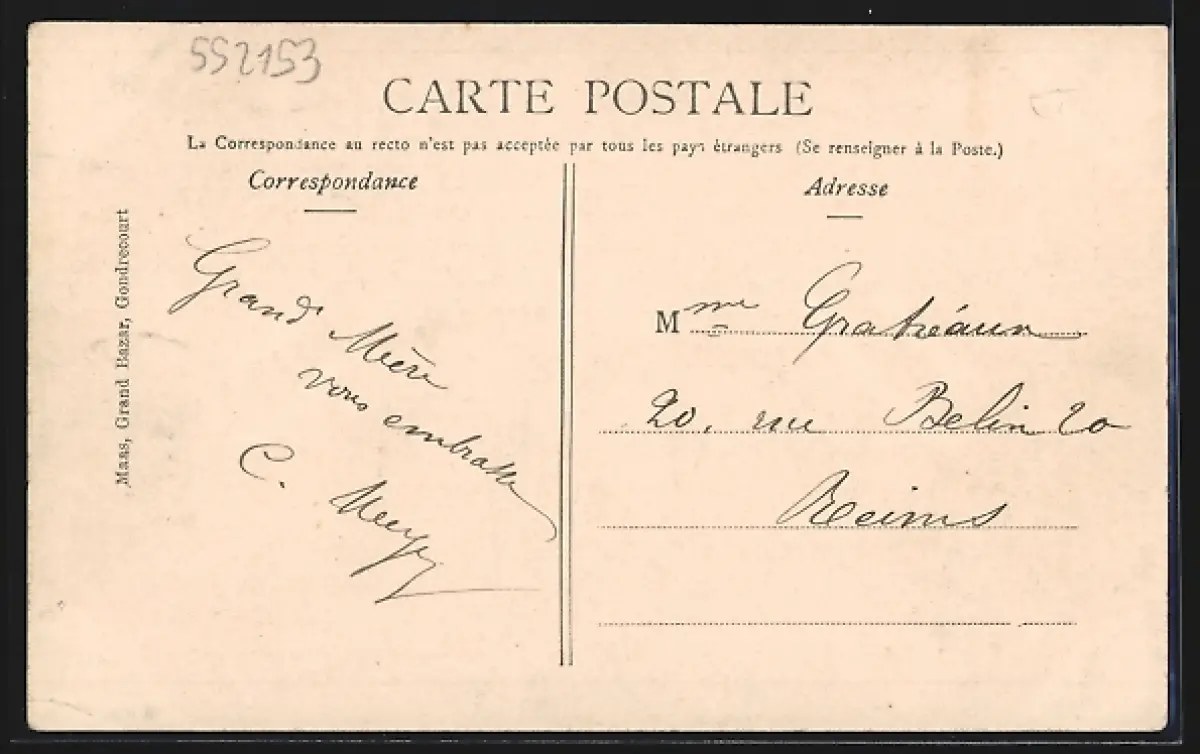 552153
CARTE POSTALE
La Correspondance au recto n'est pas acceptée par tous les pays étrangers (Se renseigner à la Poste.)
Correspondance
Grand Mère
vous embrasse
C.
Adresse
Mme
20, rue Belin 20
Reims
Maas, Grand Bazar, Gondrecourt